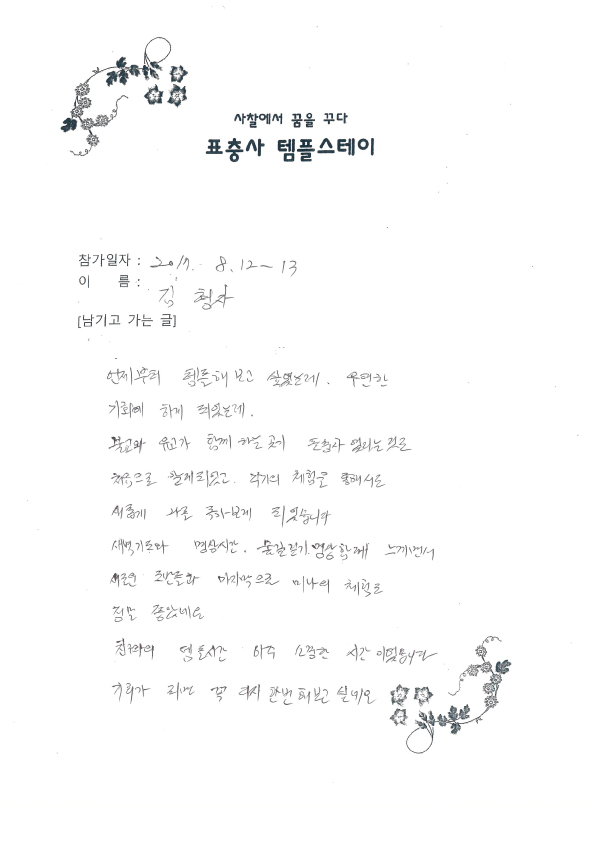 사찰에서 꿈을 꾸다
표충사 템플스테이
참가일자 : 2017. 8. 12~13
이 름 : 김
[남기고 가는 글]
언제부터 템플해보고 싶었는데. 우연한
기회에 하게 되었는데.
불교와 유교가 함께 하는 곳이 표충사 였다는 것을
처음으로 알게되었고. 각가의 체험을 통해서도
새롭게 나를 돌아보게 되었습니다
새벽기도와 명상시간. 숲길걷기 명상 함께 느끼면서
새로운 도반들과 마지막으로 체험도
정말 좋았네요
친구와의 템플시간 아주 소중한 시간이었습니다
기회가 되면 꼭 다시 한번 해보고 싶네요